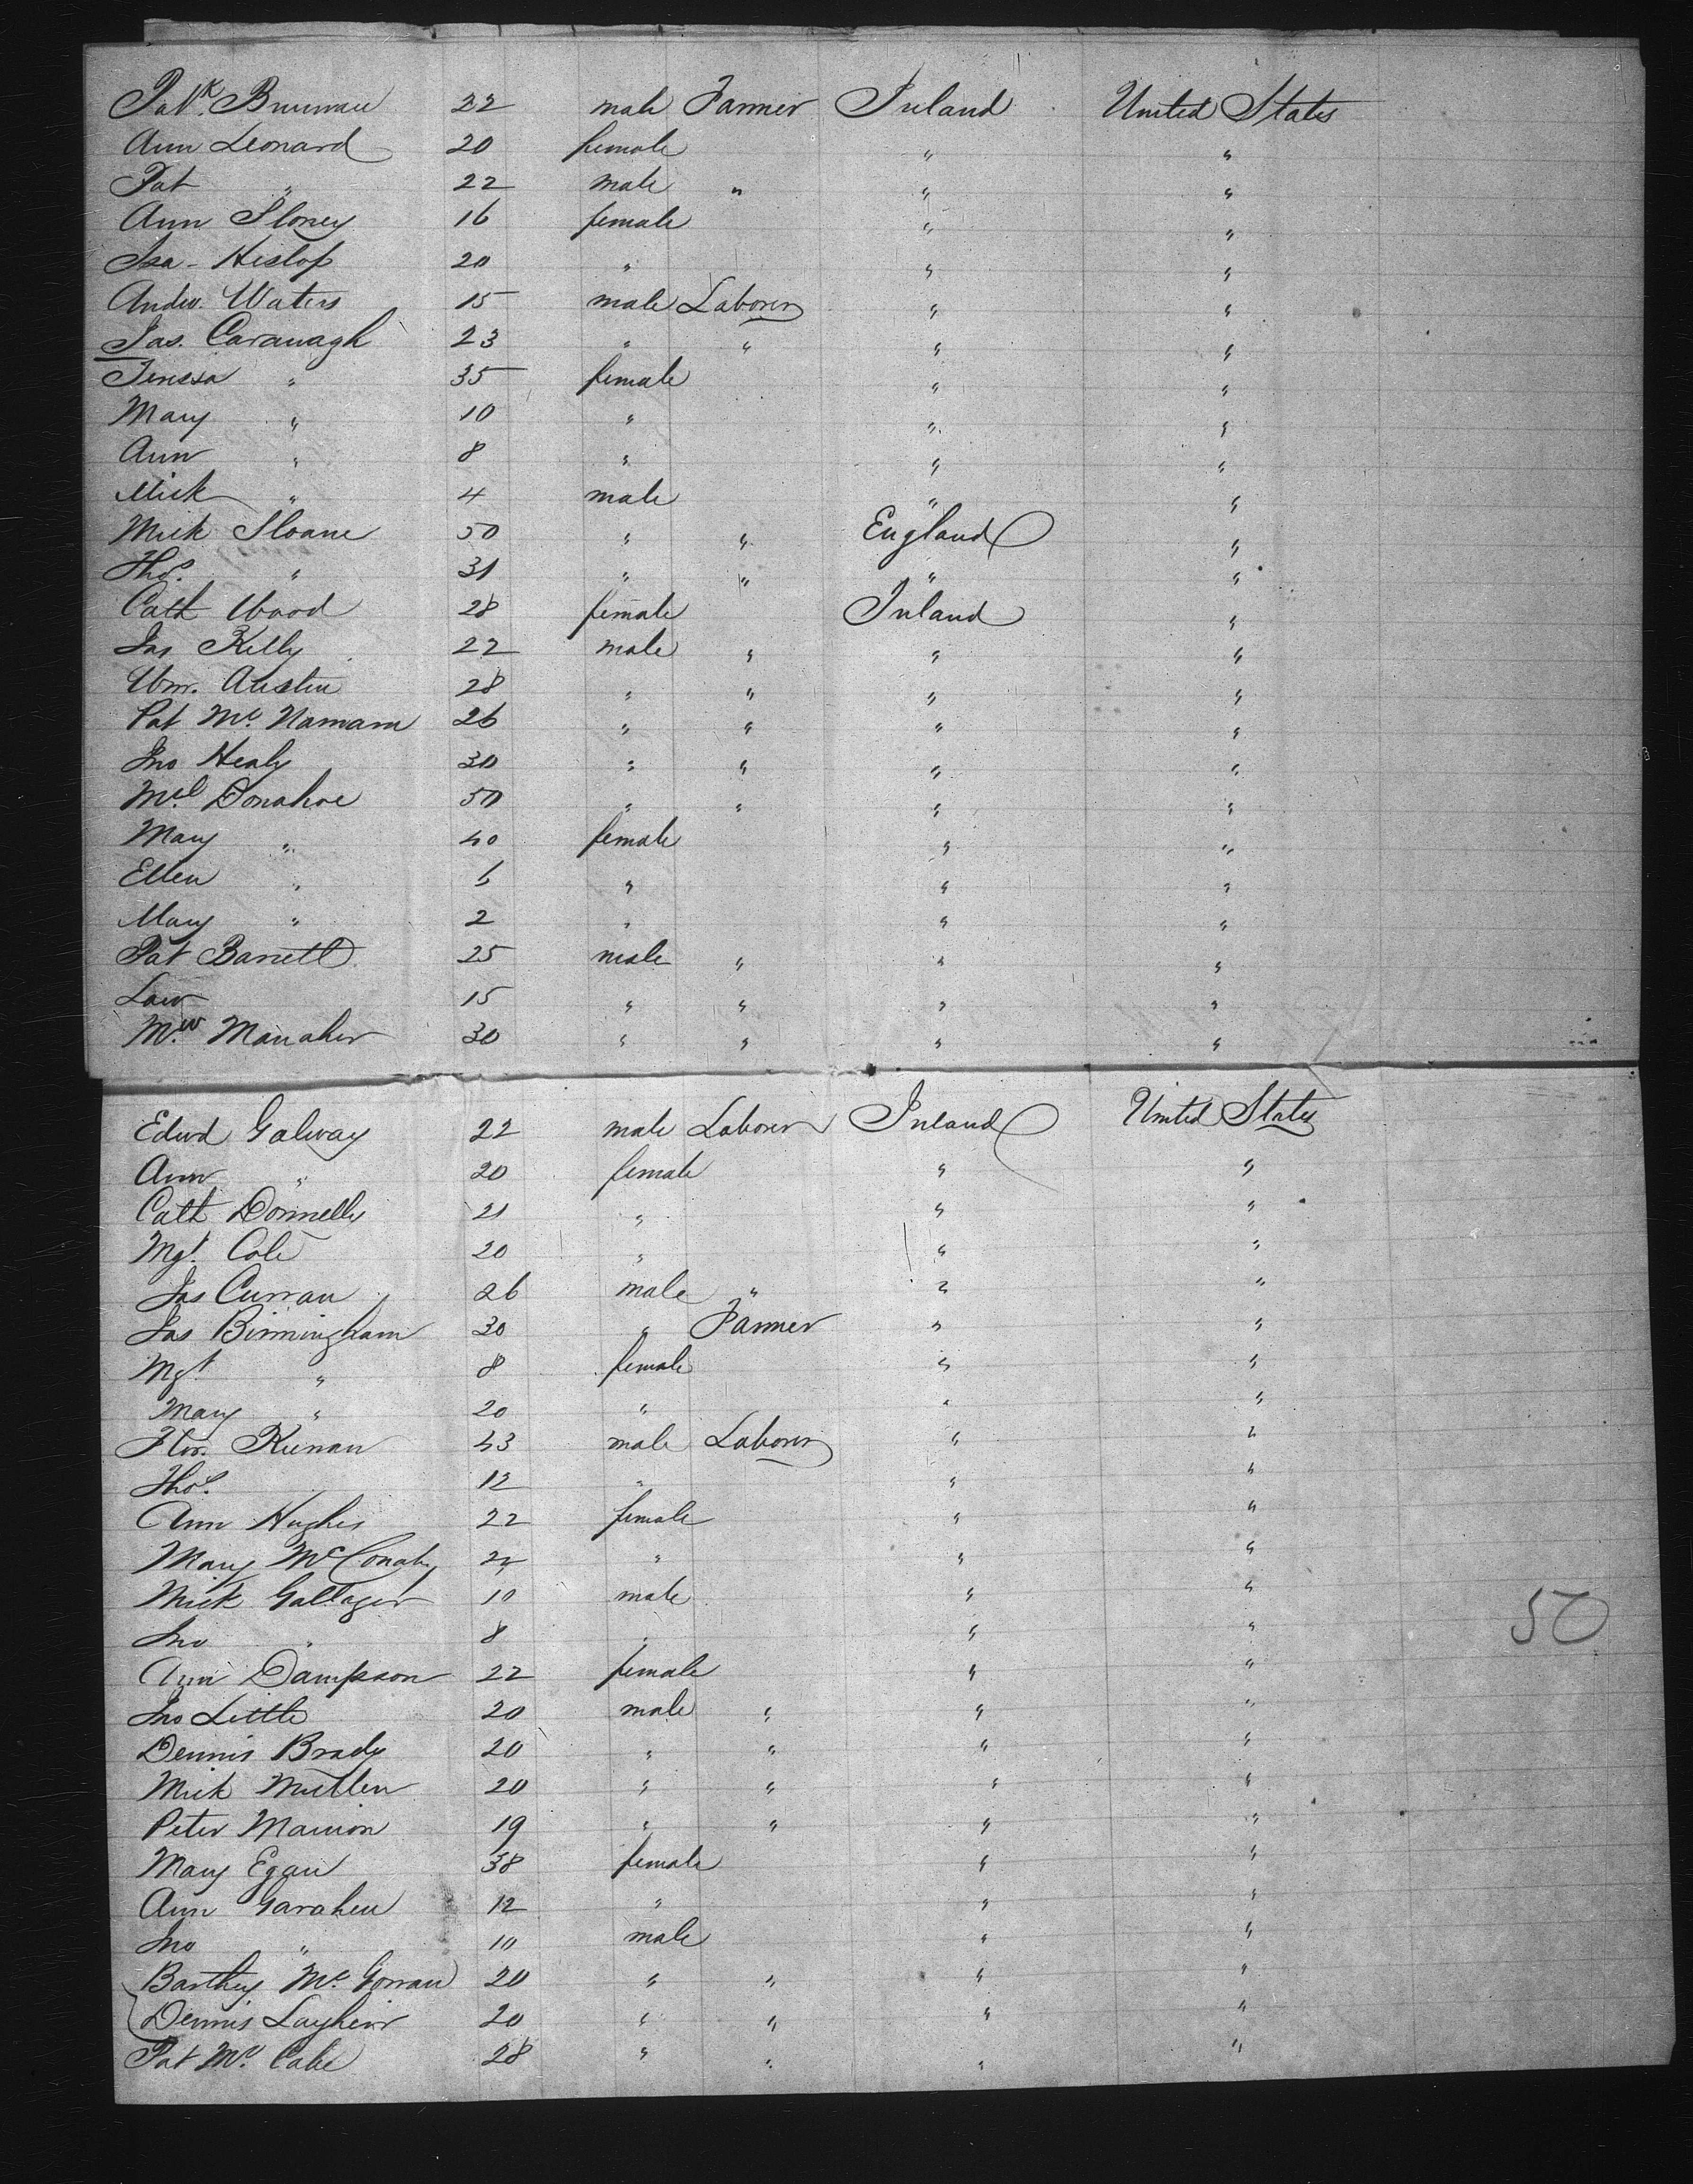 Patk. Brunnan 22 male Farmer Ireland United States
Ann Leonard 20 female " "
Pat " 22 male " " "
Ann Sloney 16 female " "
Isa - Hislop 20 " " "
Andw. Waters 15 male Laborer " "
Jas. Cavanagh 23 " " " "
Teressa " 35 female " "
Mary " 10 " " "
Ann " 8 " " "
Mick " 4 male " "
Mick Sloane 50 " " England "
Thos. " 31 " " " "
Cath Wood 28 female Ireland "
Jas Kelly 22 male " " "
Wm. Austin 28 " " " "
Pat Mc. Namara 26 " " " "
Jno Healy 30 " " " "
Mcl. Donahoe 50 " " " "
Mary " 40 female " "
Ellen " 6 " " "
Mary " 2 " " "
Pat Barrett 25 male " " "
Law 15 " " " "
Mw. Manaher 30 " " " "
Edwd Galway 22 male Laborer Ireland United States
Ann " 20 female " "
Cath Donnelly 21 " " "
Mgt. Cole 20 " " "
Jas Curran 26 male " " "
Jas Birmingham 30 " Farmer " "
Mgt " 8 female " "
Mary " 20 " " "
Flor. Kienan 43 male Laborer " "
Thos. 12 " " "
Ann Hughes 22 female " "
Mary McConaty " " "
Mick Gallager 10 male " "
Jno " 8 " " "
Ann Dampson 22 female " "
Jno Little 20 male " " "
Dennis Brady 20 " " " "
Mick Mullen 20 " " " "
Peter Manion 19 " " " "
Mary Egan 38 female " "
Ann Garahen 12 " " "
Jno " 10 male " "
Barthy Mc. Gorran 20 " " " "
Dennis Layhein 20 " " " "
Pat Mc. Cabe 28 " " " "
50